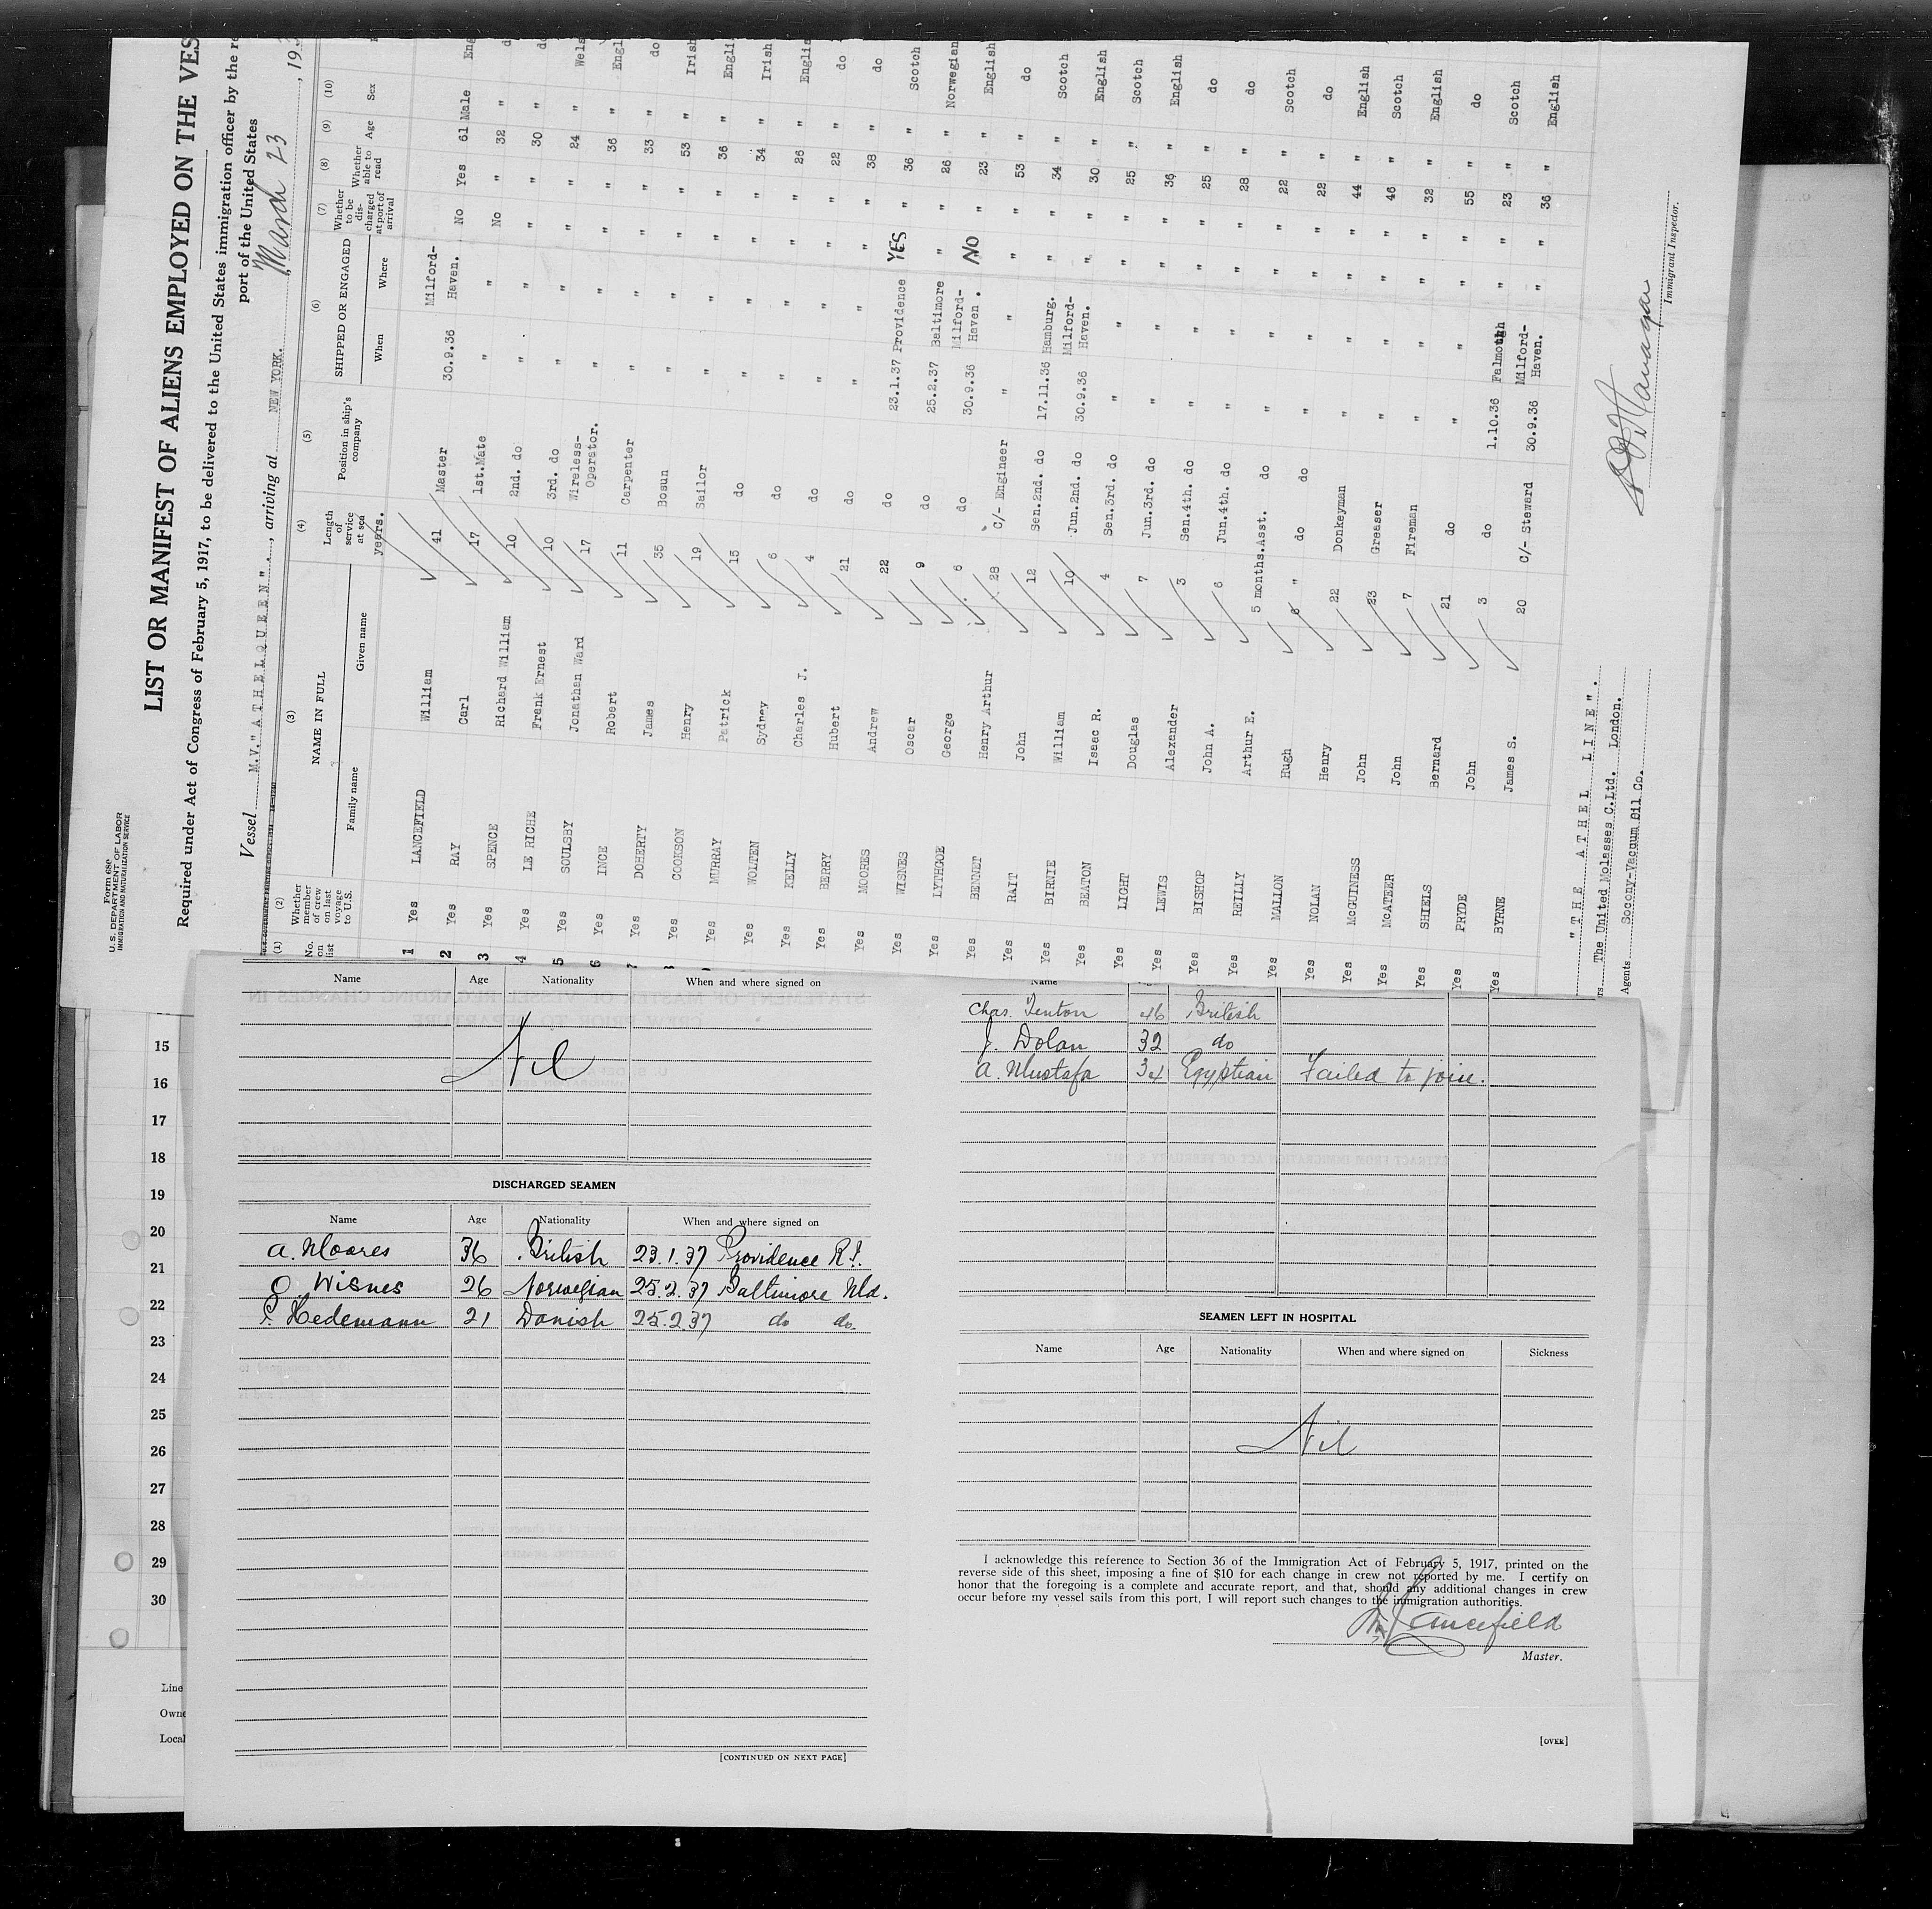 Form 680
U. S. DEPARTMENT OF LABOR
IMMIGRATION AND NATURALIZATION SERVICE
LIST OR MANIFEST OF ALIENS EMPLOYED ON THE VES
Required under Act of Congress of February 5, 1917, to be delivered to the United States immigration officer by the re
port of the United States
Vessel M.V." A T H E L Q U E E N " . , arriving at NEW YORK. , March 23 , 193
(1) (2) (3) (4) (5) (6) (7) (8) (9) (10)
No. on list Whether member of crew on last voyage to U.S. NAME IN FULL Family name Given name Length of service at sea years. Position in ship's company SHIPPED OR ENGAGED When Where Whether to be discharged at port of arrival Whether able to read Age Sex
1 Yes LANCEFIELD William 41 Master 30.9.36 Milford-Haven. No Yes 61 Male Eng
2 Yes RAY Carl 17 1st.Mate " " No " 32 " d
3 Yes SPENCE Richard William 10 2nd. do " " " " 30 " do
4 Yes LE RICHE Frank Ernest 10 3rd. do " " " " 24 " Wels
5 Yes SOULSBY Jonathan Ward 17 Wireless-Operator. " " " " 36 " Engl
6 Yes INCE Robert 11 Carpenter " " " " 33 " do
7 Yes DOHERTY James 35 Bosun " " " " 53 " Irish
Yes COOKSON Henry 19 Sailor " " " " 36 " Engli
Yes MURRAY Patrick 15 do " " " " 34 " Irish
Yes WOLTEN Sydney 6 do " " " " 26 " Englis
Yes KELLY Charles J. 4 do " " " " 22 " do
Yes BERRY Hubert 21 do " " " " 38 " do
Yes MOORES Andrew 22 do 23.1.37 Providence YES " 36 " Scotch
Yes WISNES Oscar 9 do 25.2.37 Baltimore " " 26 " Norwegian
Yes LYTHGOE George 6 do 30.9.36 Milford-Haven . NO " 23 " English
Yes BENNET Henry Arthur 28 C/- Engineer " " " " 53 " do
Yes RAIT John 12 Sen.2nd. do 17.11.36 Hamburg. " " 34 " Scotch
Yes BIRNIE William 10 Jun.2nd. do 30.9.36 Milford-Haven. " " 30 " English
Yes BEATON Isaac R. 4 Sen.3rd. do " " " " 25 " Scotch
Yes LIGHT Douglas 7 Jun.3rd. do " " " " 36 " English
Yes LEWIS Alexander 3 Sen.4th. do " " " " 25 " do
Yes BISHOP John A. 6 Jun.4th. do " " " " 28 " do
Yes REILLY Arthur E. 5 months. Asst. do " " " " 22 " Scotch
Yes MALLON Hugh 6 " do do " " " " 22 " do
Yes NOLAN Henry 22 Donkeyman " " " " 44 " English
Yes McGUINESS John 23 Greaser " " " " 46 " Scotch
Yes McATEER John 7 Fireman " " " " 32 " English
Yes SHIELS Bernard 21 do " " " " 55 " do
Yes PRYDE John 3 do 1.10.36 Falmouth " " 23 " Scotch
Yes BYRNE James S. 20 C/-Steward 30.9.36 Milford-Haven. " " 36 " English
" T H E A T H E L L I N E " .
rs The United Molasses C.Ltd. London.
Agents Socony-Vacuum Oil Co.
Immigrant Inspector.
15
16
17
18
19
20
21
22
23
24
25
26
27
28
29
30
Line
Owne
Local
Name Age Nationality When and where signed on
Nil
DISCHARGED SEAMEN
Name Age Nationality When and where signed on
A. Moores 36 British 23.1.37 Providence R.I.
O. Wisnes 26 Norwegian 25.2.37 Baltimore Md.
P. Hedemann 21 Danish 25.2.37 do do.
[CONTINUED ON NEXT PAGE]
Name
Chas. Fenton 46 British
J. Dolan 32 do
A. Mustafa 34 Egyptian Failed to join.
SEAMEN LEFT IN HOSPITAL
Name Age Nationality When and where signed on Sickness
Nil
I acknowledge this reference to Section 36 of the Immigration Act of February 5, 1917, printed on the
reverse side of this sheet, imposing a fine of $10 for each change in crew not reported by me. I certify on
honor that the foregoing is a complete and accurate report, and that, should any additional changes in crew
occur before my vessel sails from this port, I will report such changes to the immigration authorities.
Wm Lancefield
Master.
[OVER]